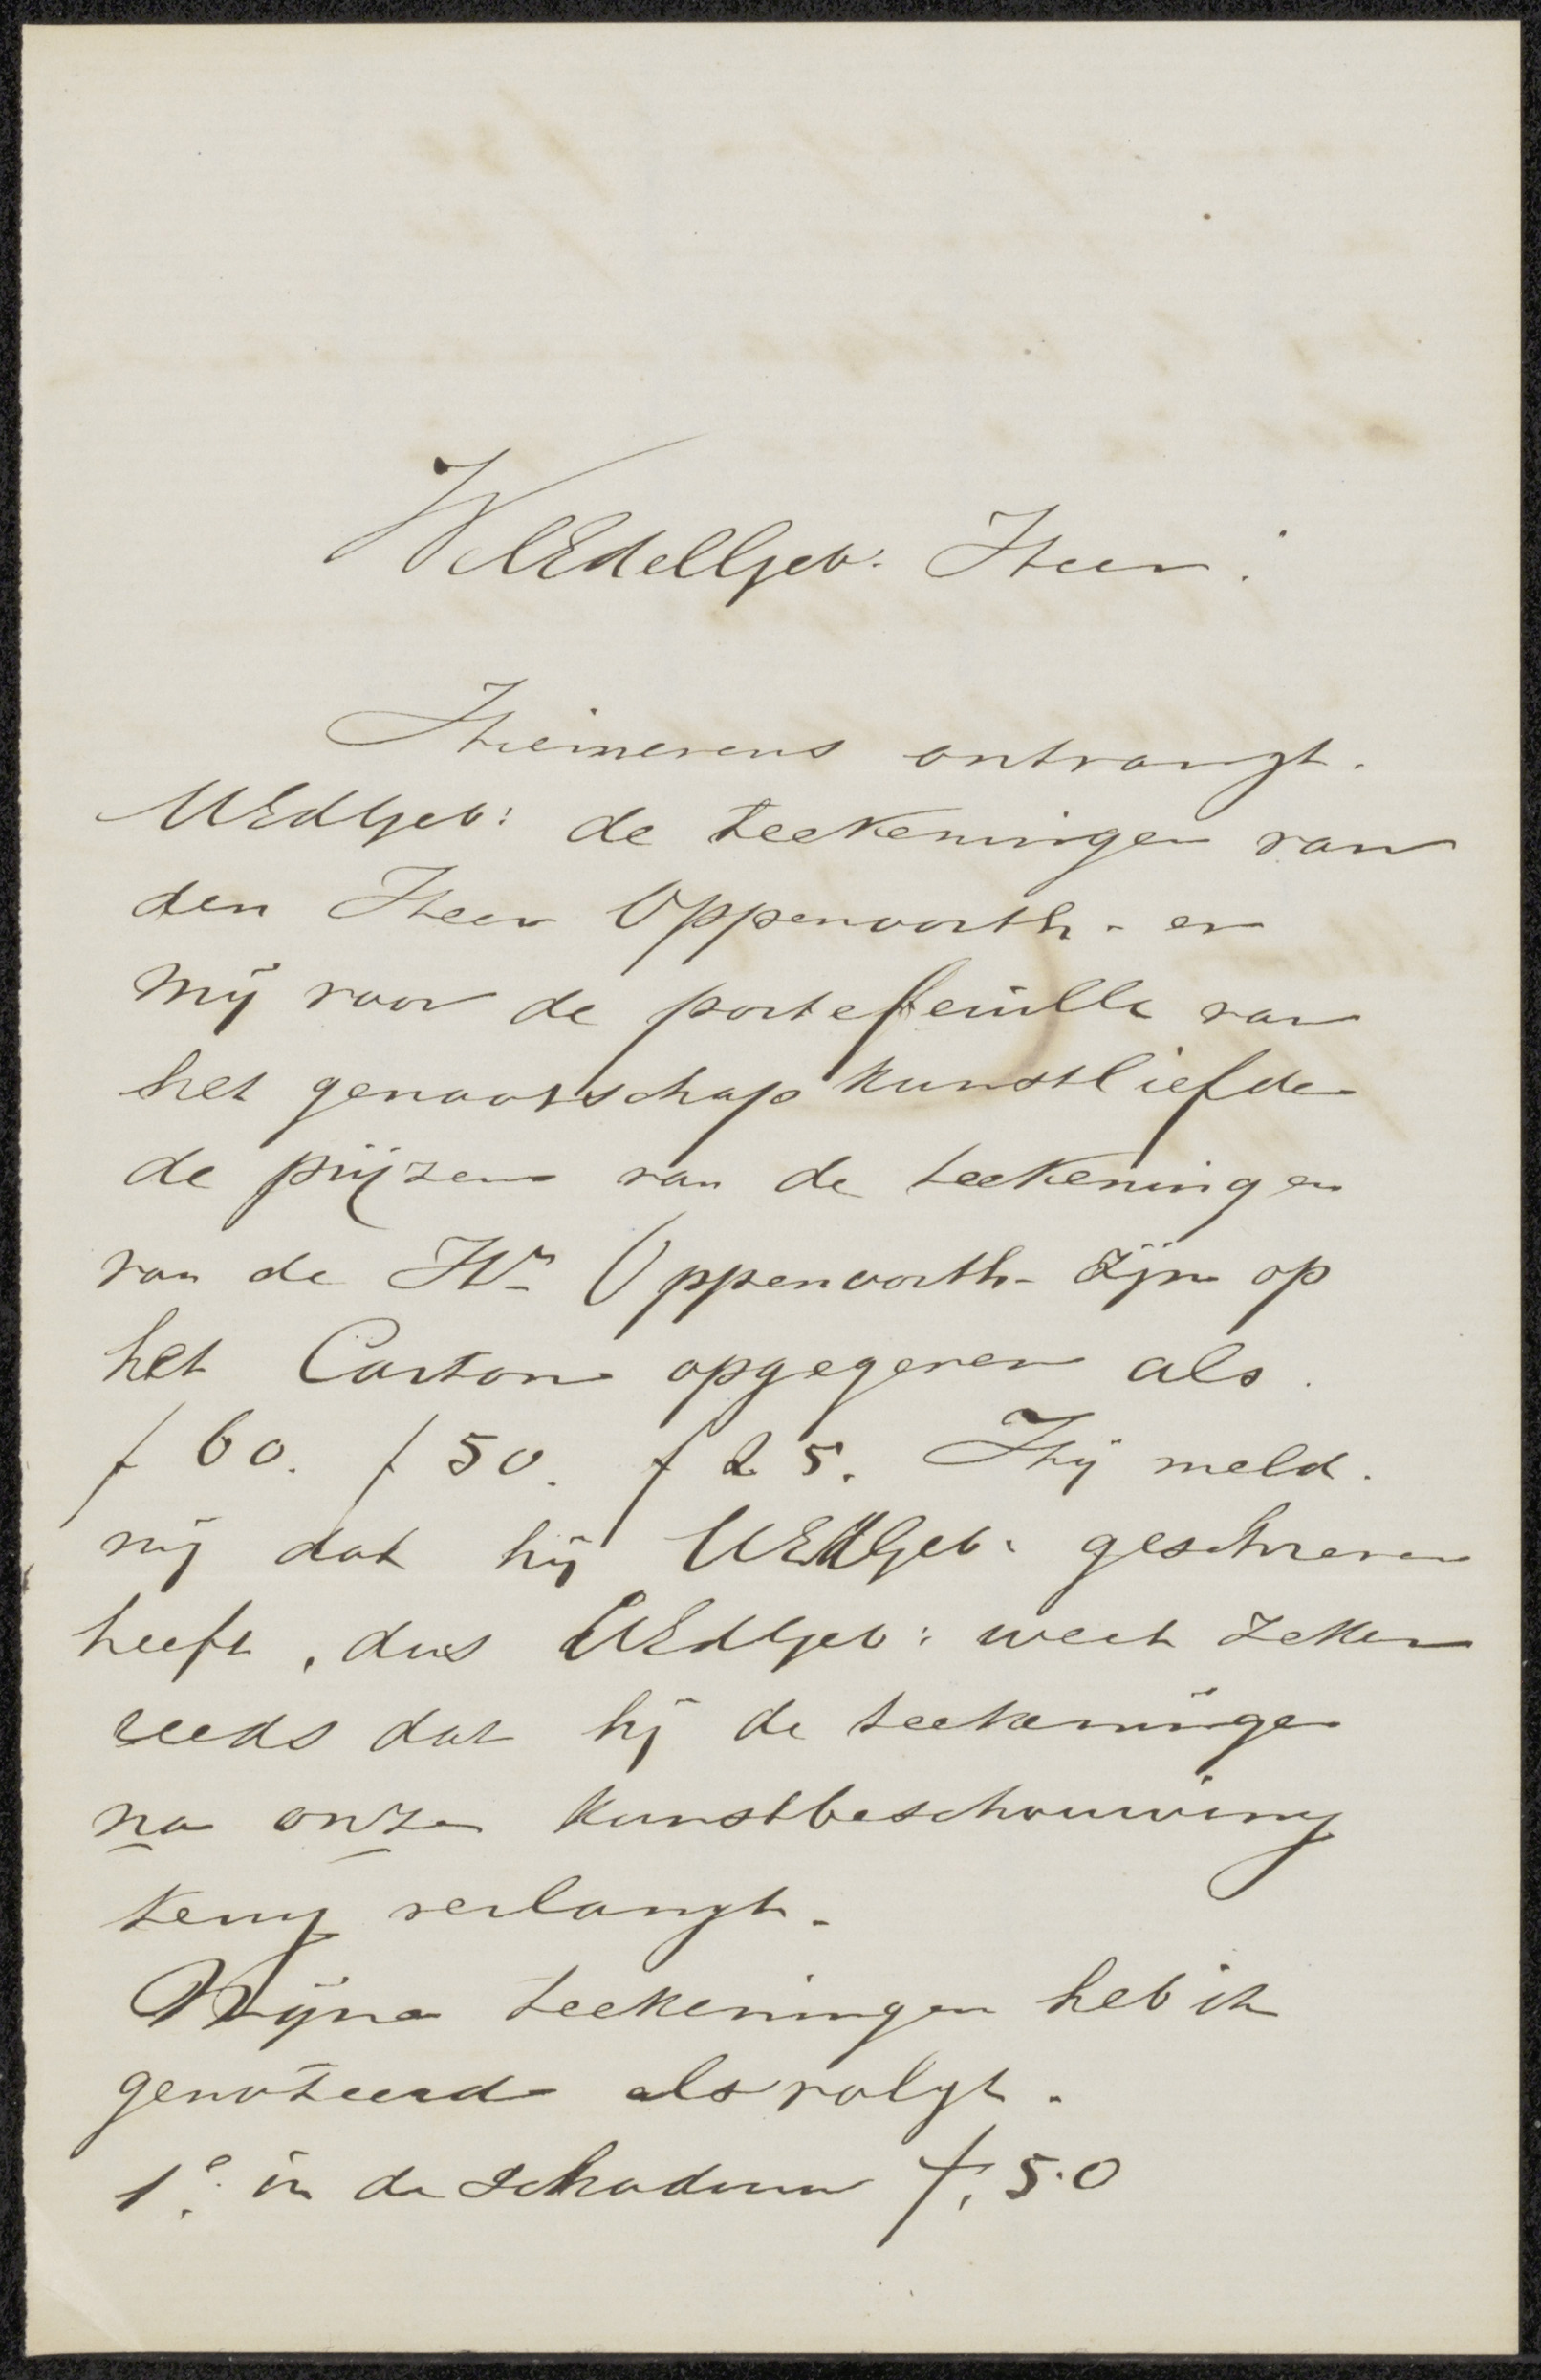 WelEdelGeb: Heer.
Hiernevens ontvangt.
UEdGeb: de teekeningen van
den Heer Oppenoorth - en
Mij voor de portefeuille van
het genootschap Kunstliefde
de prijzen van de teekeningen
van de Hr Oppenoorth - zijn op
het Carton opgegeven als.
f 60. f 50. f 25. Hij meld.
mij dat hij UEdGeb: geschreven
heeft, dus UEdGeb: weet zeker
reeds dat hij de teekeningen
na onze Kunstbeschouwing
terug verlangt.
Mijne teekeningen heb ik
genoteerd als volgt.
1e. in de schaduw f. 50